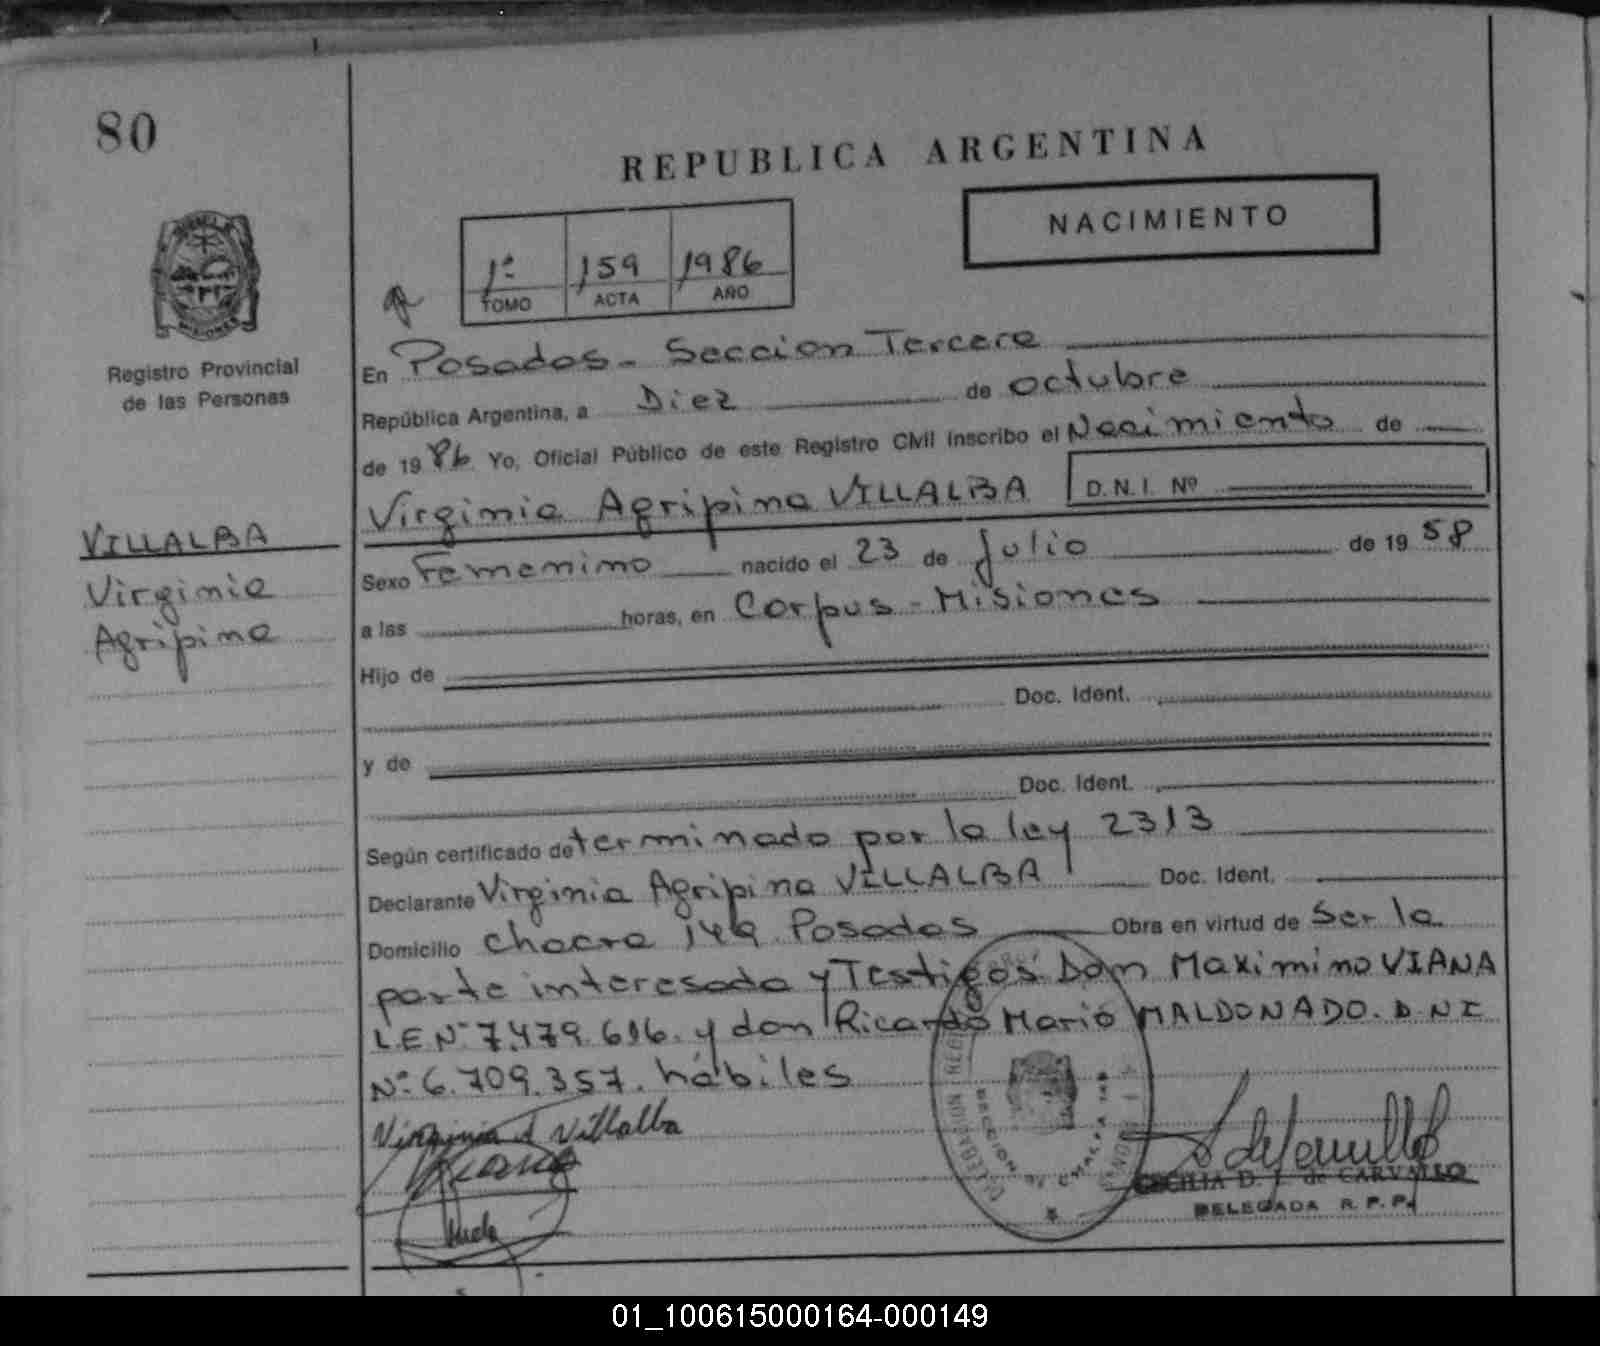 80
REPUBLICA ARGENTINA
NACIMIENTO
1º 159 1986
TOMO ACTA AÑO
Registro Provincial
de las Personas
MISIONES
En Posadas - Seccion Tercera
República Argentina, a Diez de octubre
de 1986. Yo, Oficial Público de este Registro Civil inscribo el Nacimiento de
Virginia Agripina VILLALBA D.N.I. Nº
VILLALBA
Virginia
Agripina
Sexo Femenino nacido el 23 de Julio de 1958
a las horas, en Corpus - Misiones
Hijo de
Doc. Ident.
y de
Doc. Ident.
Según certificado determinado por la ley 2313
Declarante Virginia Agripina VILLALBA Doc. Ident.
Domicilio chacra 149 Posadas Obra en virtud de Ser la
parte interesada y Testigos Don Maximino VIANA
L.E Nº 7.479.616. y don Ricardo Mario MALDONADO. D.N.I
Nº 6.709.357. hábiles
Virginia A Villalba
CECILIA D. J. de CARVALLO
DELEGADA R. P. P.
01_100615000164-000149